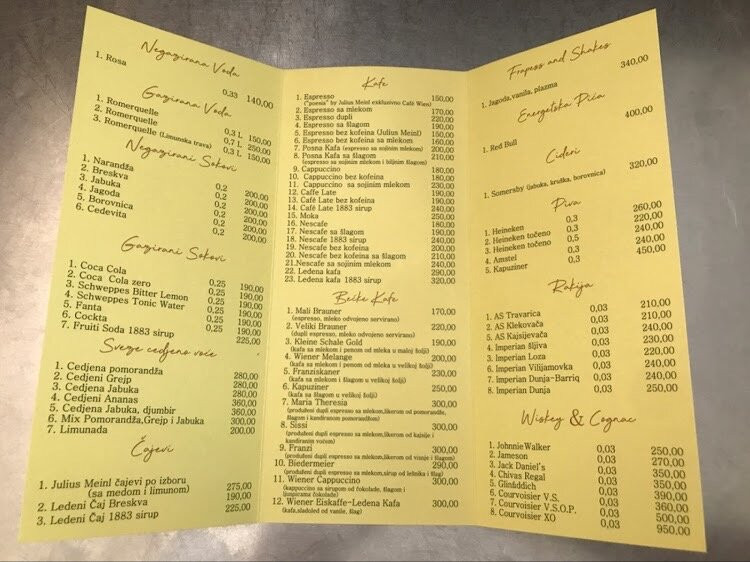 Negazirana Voda
1. Rosa 0,33 140,00
Gazirana Voda
1. Romerquelle 0,3 L 150,00
2. Romerquelle 0,7 L 250,00
3. Romerquelle (Limunska trava) 0,3 L 150,00
Negazirani Sokovi
1. Narandža 0,2 200,00
2. Breskva 0,2 200,00
3. Jabuka 0,2 200,00
4. Jagoda 0,2 200,00
5. Borovnica 0,2 200,00
6. Cedevita 0,2 200,00
Gazirani Sokovi
1. Coca Cola 0,25 190,00
2. Coca Cola zero 0,25 190,00
3. Schweppes Bitter Lemon 0,25 190,00
4. Schweppes Tonic Water 0,25 190,00
5. Fanta 0,25 190,00
6. Cockta 0,25 190,00
7. Fruiti Soda 1883 sirup 225,00
Sveze cedjeno voće
1. Cedjena pomorandža 280,00
2. Cedjeni Grejp 280,00
3. Cedjena Jabuka 280,00
4. Cedjeni Ananas 360,00
5. Cedjena Jabuka, djumbir 360,00
6. Mix Pomorandža,Grejp i Jabuka 300,00
7. Limunada 200,00
Čajevi
1. Julius Meinl čajevi po izboru 275,00
(sa medom i limunom)
2. Ledeni Čaj Breskva 190,00
3. Ledeni Čaj 1883 sirup 225,00
Kafe
1. Espresso 150,00
("poesia" by Julius Meinl exkluzivno Café Wien)
2. Espresso sa mlekom 170,00
3. Espresso dupli 220,00
4. Espresso sa šlagom 190,00
5. Espresso bez kofeina (Julius Meinl) 150,00
6. Espresso bez kofeina sa mlekom 160,00
7. Posna Kafa (espresso sa sojinim mlekom) 200,00
8. Posna Kafa sa šlagom 210,00
(espresso sa sojinim mlekom i biljnim šlagom)
9. Cappuccino 180,00
10. Cappuccino bez kofeina 180,00
11. Cappuccino sa sojinim mlekom 230,00
12. Caffe Late 190,00
13. Café Late bez kofeina 190,00
14. Café Late 1883 sirup 240,00
15. Moka 250,00
16. Nescafe 180,00
17. Nescafe sa šlagom 190,00
18. Nescafe 1883 sirup 240,00
19. Nescafe bez kofeina 200,00
20. Nescafe bez kofeina sa šlagom 210,00
21.Nescafe sa sojinim mlekom 240,00
22. Ledena kafa 290,00
23. Ledena kafa 1883 sirup 320,00
Bečke Kafe
1. Mali Brauner 170,00
(espresso, mleko odvojeno servirano)
2. Veliki Brauner 220,00
(dupli espresso, mleko odvojeno servirano)
3. Kleine Schale Gold 190,00
(kafa sa mlekom i penom od mleka u maloj šolji)
4. Wiener Melange 200,00
(kafa sa mlekom i penom od mleka u velikoj šolji)
5. Franziskaner 230,00
(kafa sa mlekom i šlagom u velikoj šolji)
6. Kapuziner 250,00
(kafa sa šlagom u velikoj šolji)
7. Maria Theresia 300,00
(produženi dupli espresso sa mlekom,likerom od pomorandže,
šlagom i kandiranom pomorandžom)
8. Sissi 300,00
(produženi dupli espresso sa mlekom,likerom od kajsije i
kandiranim voćem)
9. Franzi 300,00
(produženi dupli espresso sa mlekom,likerom od višnje i šlagom)
10. Biedermeier 290,00
(produženi dupli espresso sa mlekom,sirup od lešnika i šlag)
11. Wiener Cappuccino 300,00
(kappuccino sa sirupom od čokolade, šlagom i
čokolade)
12. Wiener Eiskaffe-Ledena Kafa 300,00
(kafa,sladoled od vanile, šlag)
Frapess and Shakes
1. Jagoda, vanila, plazma 340,00
Energetska Pića
1. Red Bull 400,00
Cideri
1. Somersby (jabuka, kruška, borovnica) 320,00
Piva
1. Heineken 0,3 260,00
2. Heineken točeno 0,3 220,00
3. Heineken točeno 0,5 240,00
4. Amstel 0,3 240,00
5. Kapuziner 0,5 450,00
Rakija
1. AS Travarica 0,03 210,00
2. AS Klekovača 0,03 210,00
5. AS Kajsijevača 0,03 240,00
4. Imperian šljiva 0,03 230,00
5. Imperian Loza 0,03 220,00
6. Imperian Vilijamovka 0,03 240,00
7. Imperian Dunja-Barriq 0,03 240,00
8. Imperian Dunja 0,03 250,00
Wiskey & Cognac
1. Johnnie Walker 0,03 250,00
2. Jameson 0,03 270,00
3. Jack Daniel's 0,03 350,00
4. Chivas Regal 0,03 350,00
5. Glinfiddich 0,03 390,00
6. Courvoisier V.S. 0,03 360,00
7. Courvoisier V.S.O.P. 0,03 500,00
8. Courvoisier XO 0,03 950,00